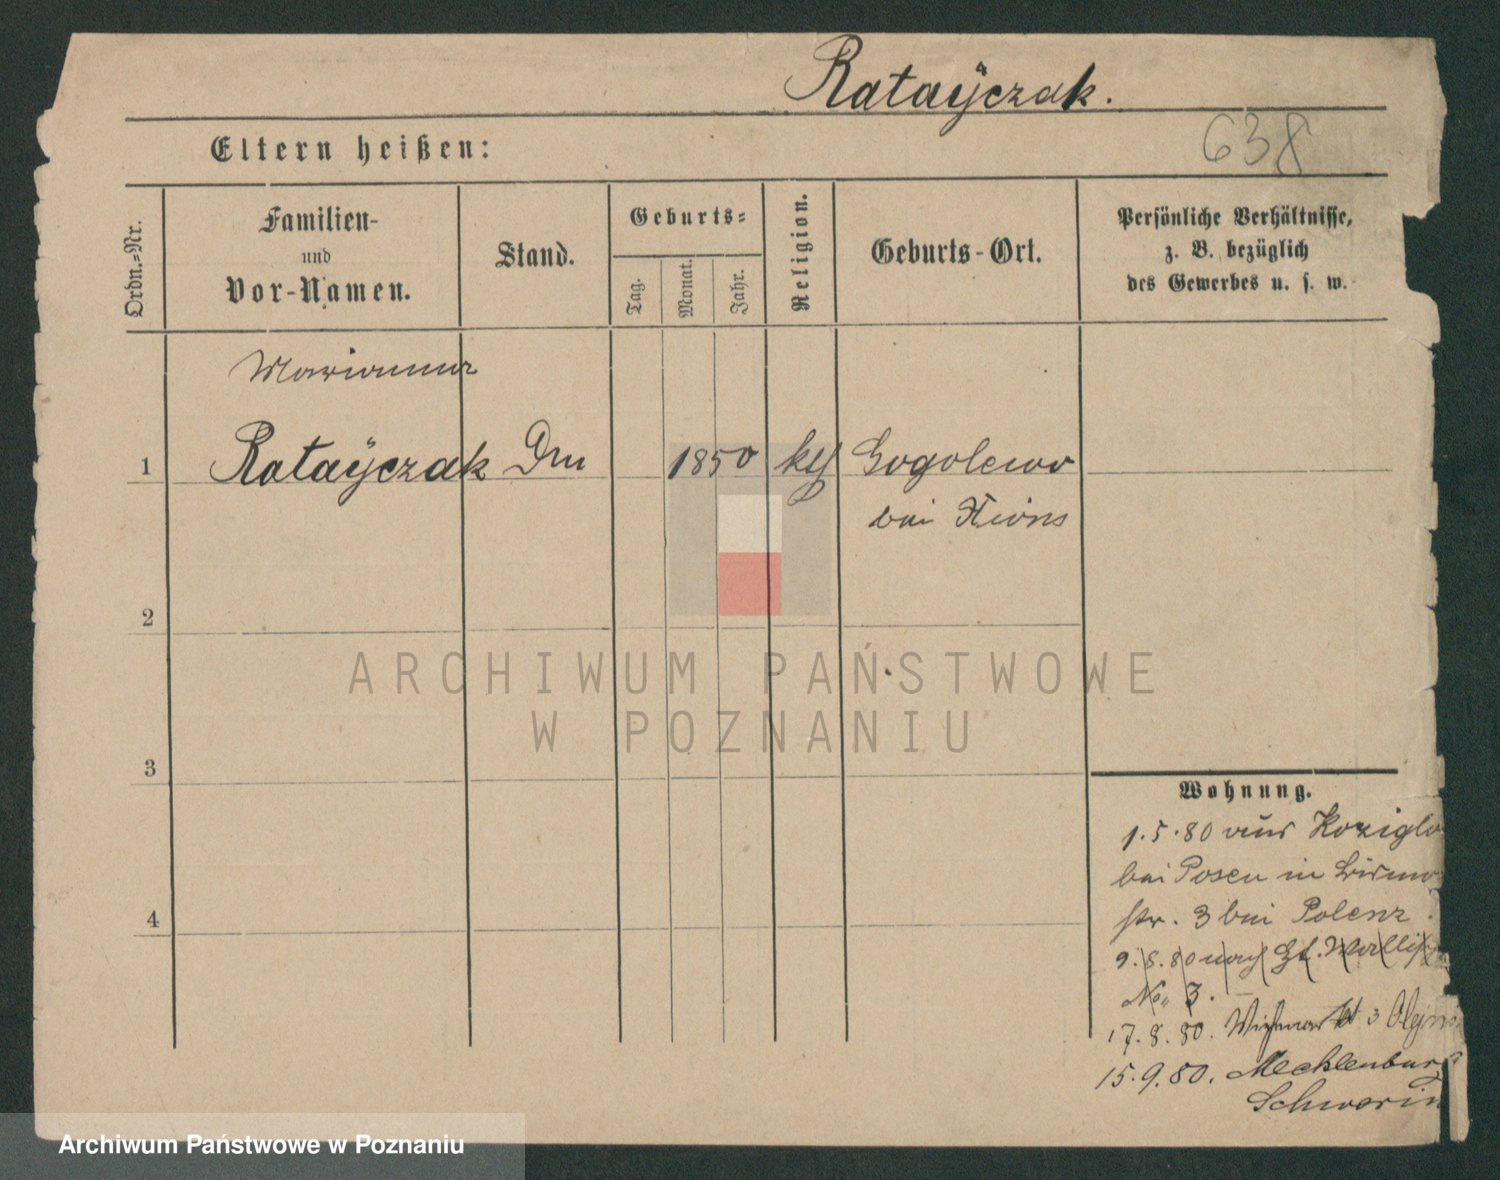 Ratayczak.
638
Eltern heißen:
Ordn.=Nr.
Familien-
und
Vor-Namen.
Stand.
Geburts=
Tag.
Monat.
Jahr.
Religion.
Geburts-Ort.
Persönliche Verhältnisse,
z. B. bezüglich
des Gewerbes u. s. w.
Marianna
1 Rataÿczak 1850 kg Gogolewo
bei Xions
2
ARCHIWUM PAŃSTWOWE
W POZNANIU
3
Wohnung.
1.5.80 aus Koziglo
bei Posen in
str. 3 bei Polenz.
4
9.8.80 nach Gr.
No. 3.
17.8.80. 3
15.9.80. Mecklenburg
Schwerin
Archiwum Państwowe w Poznaniu